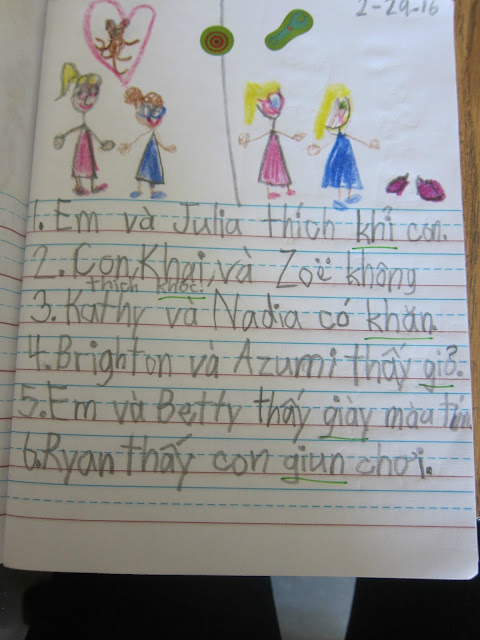 2-29-16
1. Em và Julia thích khỉ con.
2. Con Khai và Zoë không
thích khóc.
3. Kathy và Nadia có khăn.
4. Brighton và Azumi thấy giỏ.
5. Em và Betty thấy giày màu tím
6. Ryan thấy con giun chơi.